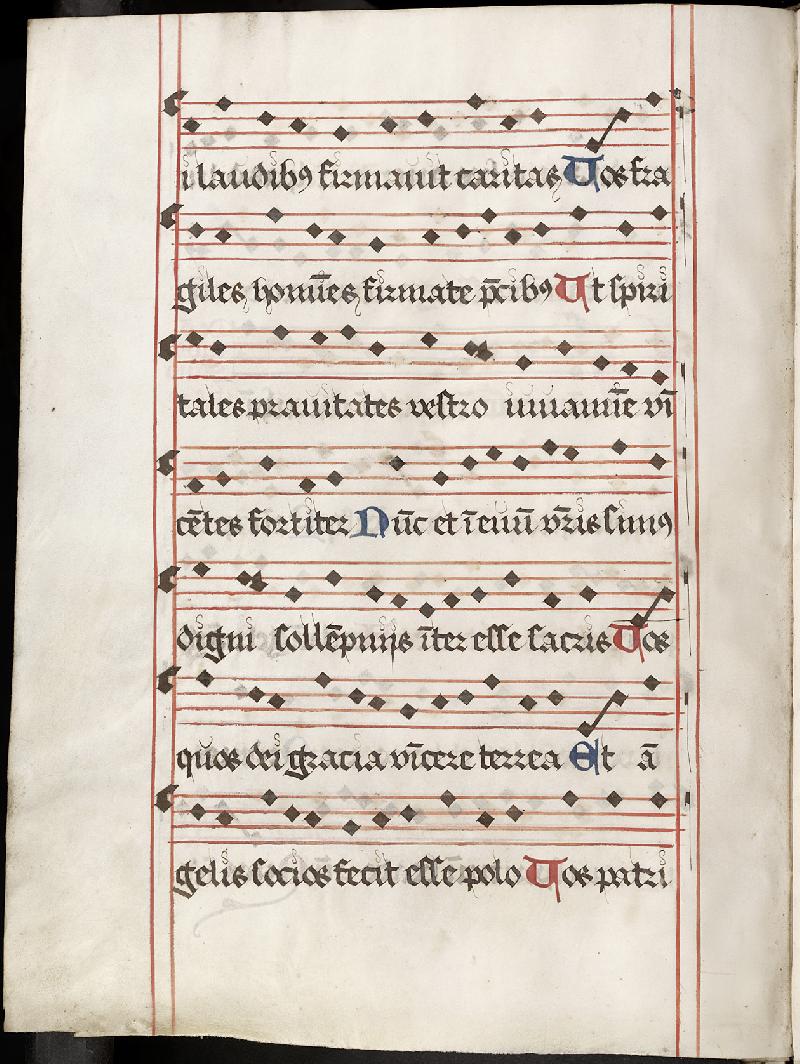 i laudibꝯ firmauit caritas Vos fra
giles homīes firmate p̄cibꝯ Ut spiri
tales prauitates vestro iuuamīe vī
cētes fortiter Nūc et ī euū vr̄is simꝯ
digni sollēpnijs īter esse sacris Vos
quos dei gracia vīcere terrea Et ā
gelis socios fecit esse polo Vos patri